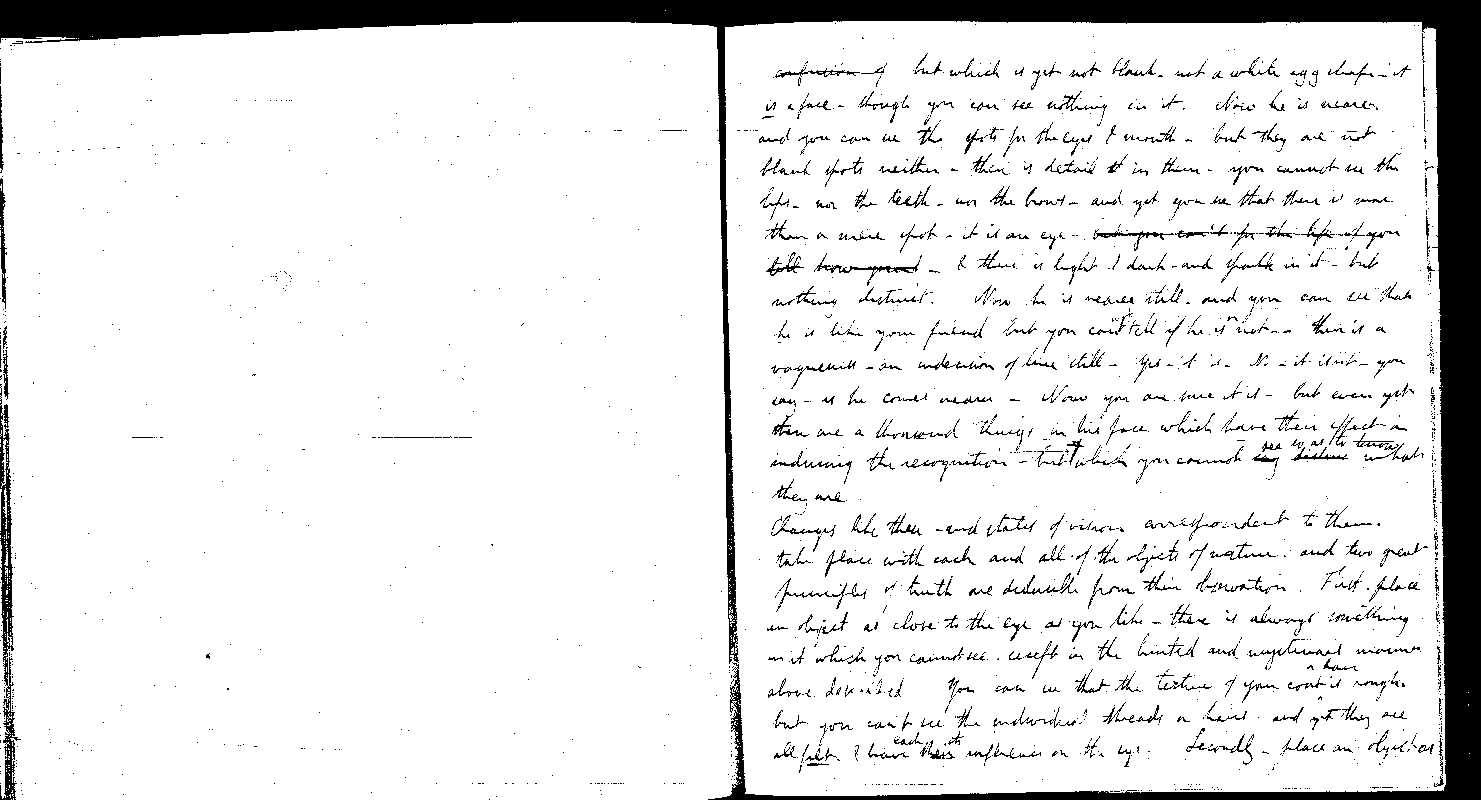 confusion of but which is yet not blank - not a white egg shape - it
is a face - though you can see nothing in it. Now he is nearer
and you can see the spots for the eyes & mouth - but they are not
blank spots neither - there is detail in them - you cannot see the
lips - nor the teeth - nor the brows - and yet you see that there is more
than a mere spot - it is an eye - but you can't for the life of you
tell how you - & there is light & dark - and sparkle in it - but
nothing distinct. Now he is nearer still - and you can see that
he is like your friend but you can't tell if he is not - there is a
vagueness - an indecision of line still - Yes - it is - No - it isnt - you
say - as he comes nearer - Now you are sure it is - but even yet
there are a thousand things in his face which have their effect in
inducing the recognition - but which you cannot see so as to know what
they are
Changes like these - and states of vision correspondent to them -
take place with each and all of the objects of nature. and two great
principles of truth are deducible from their observation. First. place
an object as close to the eye as you like - there is always something
in it which you cannot see. except in the hinted and mysterious manner
above described You can see that the texture of your coat is rough.
but you can't see the individual threads or hairs. and yet they are
all felt & have each its influence on the eye. Secondly - place an object as